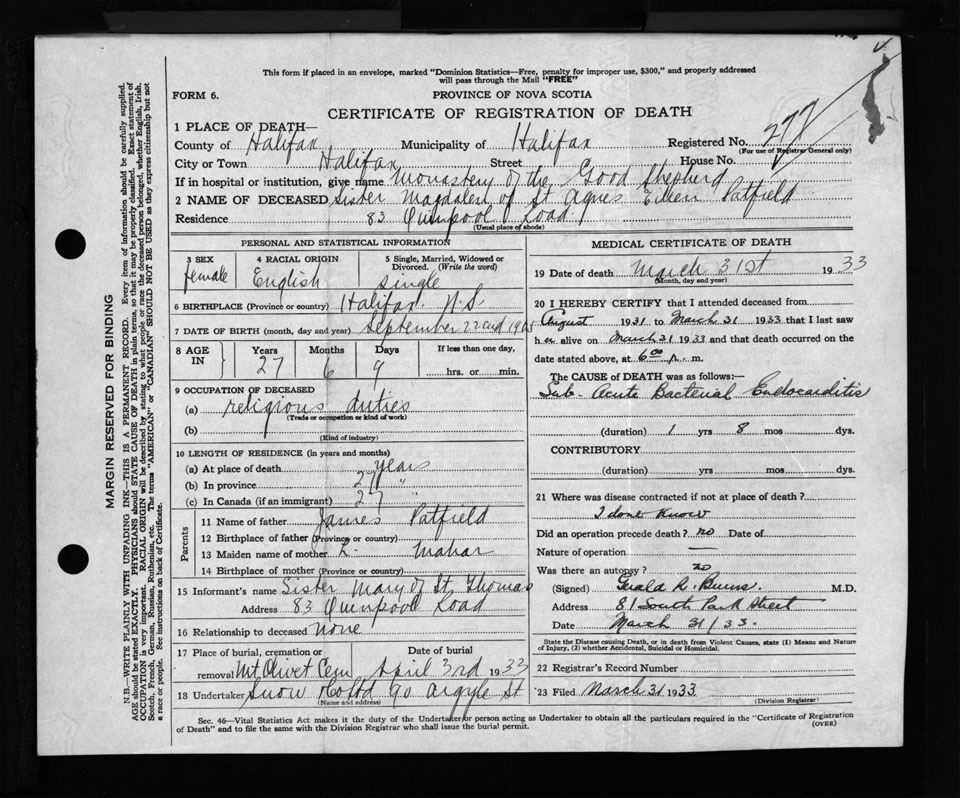 This form if placed in an envelope, marked "Dominion Statistics—Free, penalty for improper use, $300," and properly addressed
will pass through the Mail "FREE"
FORM 6.
PROVINCE OF NOVA SCOTIA
CERTIFICATE OF REGISTRATION OF DEATH
1 PLACE OF DEATH—
County of Halifax Municipality of Halifax Registered No. 277
(For use of Registrar General only)
City or Town Halifax Street House No.
If in hospital or institution, give name Monastery of the Good Shepherd
2 NAME OF DECEASED Sister Magdalen of St Agnes Eileen Patfield
Residence 83 Quinpool Road
(Usual place of abode)
PERSONAL AND STATISTICAL INFORMATION
3 SEX
female
4 RACIAL ORIGIN
English
5 Single, Married, Widowed or
Divorced. (Write the word)
single
6 BIRTHPLACE (Province or country) Halifax N.S.
7 DATE OF BIRTH (month, day and year) September 22nd 1905
8 AGE IN
Years Months Days If less than one day,
27 6 9 hrs. or min.
9 OCCUPATION OF DECEASED
(a) religious duties
(Trade or occupation or kind of work)
(b)
(Kind of industry)
10 LENGTH OF RESIDENCE (in years and months)
(a) At place of death years
(b) In province 27 "
(c) In Canada (if an immigrant) 27 "
Parents
11 Name of father James Patfield
12 Birthplace of father (Province or country)
13 Maiden name of mother L. Mahar
14 Birthplace of mother (Province or country)
15 Informant's name Sister Mary of St Thomas
Address 83 Quinpool Road
16 Relationship to deceased none
17 Place of burial, cremation or
removal Mt Olivet Cem
Date of burial
April 3rd 1933
18 Undertaker Snow 90 Argyle St
(Name and address)
MEDICAL CERTIFICATE OF DEATH
19 Date of death March 31st 1933
(Month, day and year)
20 I HEREBY CERTIFY that I attended deceased from
August 1931 to March 31 1933 that I last saw
her alive on March 31 1933 and that death occurred on the
date stated above, at 6 00 p. m.
The CAUSE OF DEATH was as follows:—
Sub-Acute Bacterial Endocarditis
(duration) 1 yrs 8 mos dys.
CONTRIBUTORY
(duration) yrs. mos. dys.
21 Where was disease contracted if not at place of death?
I dont know
Did an operation precede death? no Date of
Nature of operation —
Was there an autopsy? no
(Signed) Gerald R. Burns. M.D.
Address 81 South Park Street
Date March 31/33.
State the Disease causing Death, or in death from Violent Causes, state (1) Means and Nature
of Injury, (2) whether Accidental, Suicidal or Homicidal.
22 Registrar's Record Number
23 Filed March 31 1933
(Division Registrar)
Sec. 46—Vital Statistics Act makes it the duty of the Undertaker or person acting as Undertaker to obtain all the particulars required in the "Certificate of Registration
of Death" and to file the same with the Division Registrar who shall issue the burial permit.
(OVER)
MARGIN RESERVED FOR BINDING
N.B.—WRITE PLAINLY WITH UNFADING INK—THIS IS A PERMANENT RECORD. Every item of information should be carefully supplied.
AGE should be stated EXACTLY. PHYSICIANS should STATE CAUSE OF DEATH in plain terms, so that it may be properly classified. Exact statement of
OCCUPATION is very important. RACIAL ORIGIN will be described by stating to what people or race the deceased person belonged, whether English, Irish,
Scotch, French, German, Russian, Ruthenian, etc. The terms "AMERICAN" or "CANADIAN" SHOULD NOT BE USED as they express citizenship but not
a race or people. See instructions on back of Certificate.